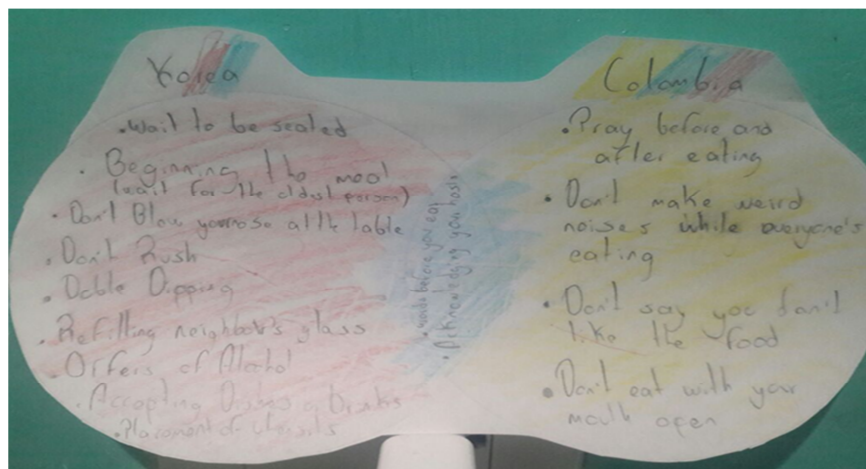 Korea
• Wait to be seated
• Beginning the meal
(wait for the oldest person)
• Don't Blow your nose at the table
• Don't Rush
• Doble Dipping
• Refilling neighbor's glass
• Offers of Alcohol
• Accepting Dishes or Drinks
• Placement of utensils
• wash before you eat
• Acknowledging your hosts
Colombia
• Pray before and
after eating
• Don't make weird
noises while everyone's
eating
• Don't say you don't
like the food
• Don't eat with your
mouth open